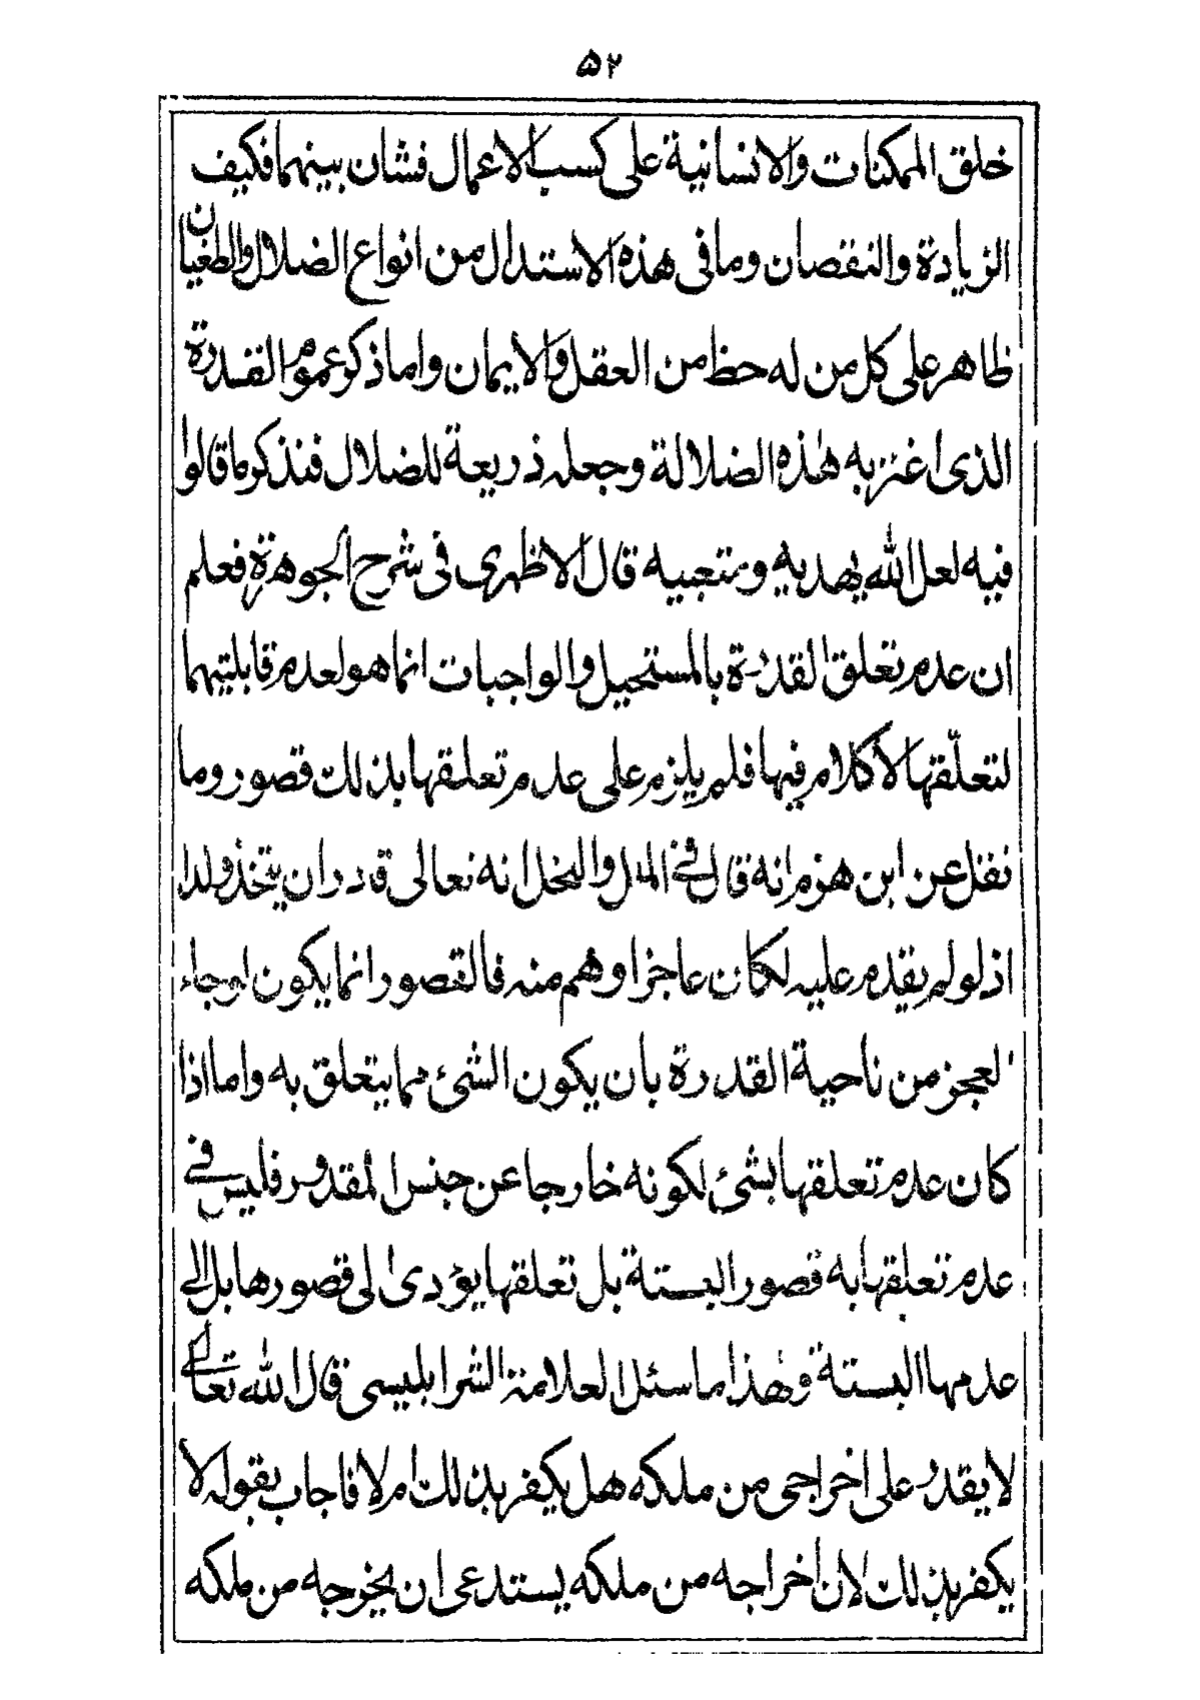 ۵۲
خلق الممكنات والانسانية على كسب الاعمال فشان بينهما فكيف
الزيادة والنقصان وما فى هذه الاستدلال من انواع الضلال والطغيان
ظاهر على كل من له حظ من العقل والايمان واما ذكر عموم القدرة
الذى اغتر به هذه الضلالة وجعله ذريعة للضلال فنذكر ما قالوا
فيه لعل الله يهديه ومتبعيه قال الاظهرى فى شرح الجوهرة فعلم
ان عدم تعلق القدرة بالمستحيل والواجبات انما هو لعدم قابليتهما
لتعلّقها لا كلام فيها فلم يلزم على عدم تعلقها بذلك قصور وما
نقل عن ابن هزم انه قال فى الملل والنحل انه تعالى قادر ان يتخذ ولدا
اذ لو لم يقدم عليه لكان عاجزا وهم منه فالقصور انما يكون لو جاء
العجز من ناحية القدرة بان يكون الشئ مما يتعلق به واما اذا
كان عدم تعلقها بشئ لكونه خارجا عن جنس المقدور فليس فى
عدم تعلقها به قصور البستة بل تعلقها يؤدى الى قصورها بل الى
عدمها البستة وهذا ما سئل العلامة الشرابليسى قال الله تعالى
لا يقدر على اخراجى من ملكه هل يكفر بذلك ام لا فاجاب بقوله لا
يكفر بذلك لان اخراجه من ملكه يستدعى ان يخرجه من ملكه